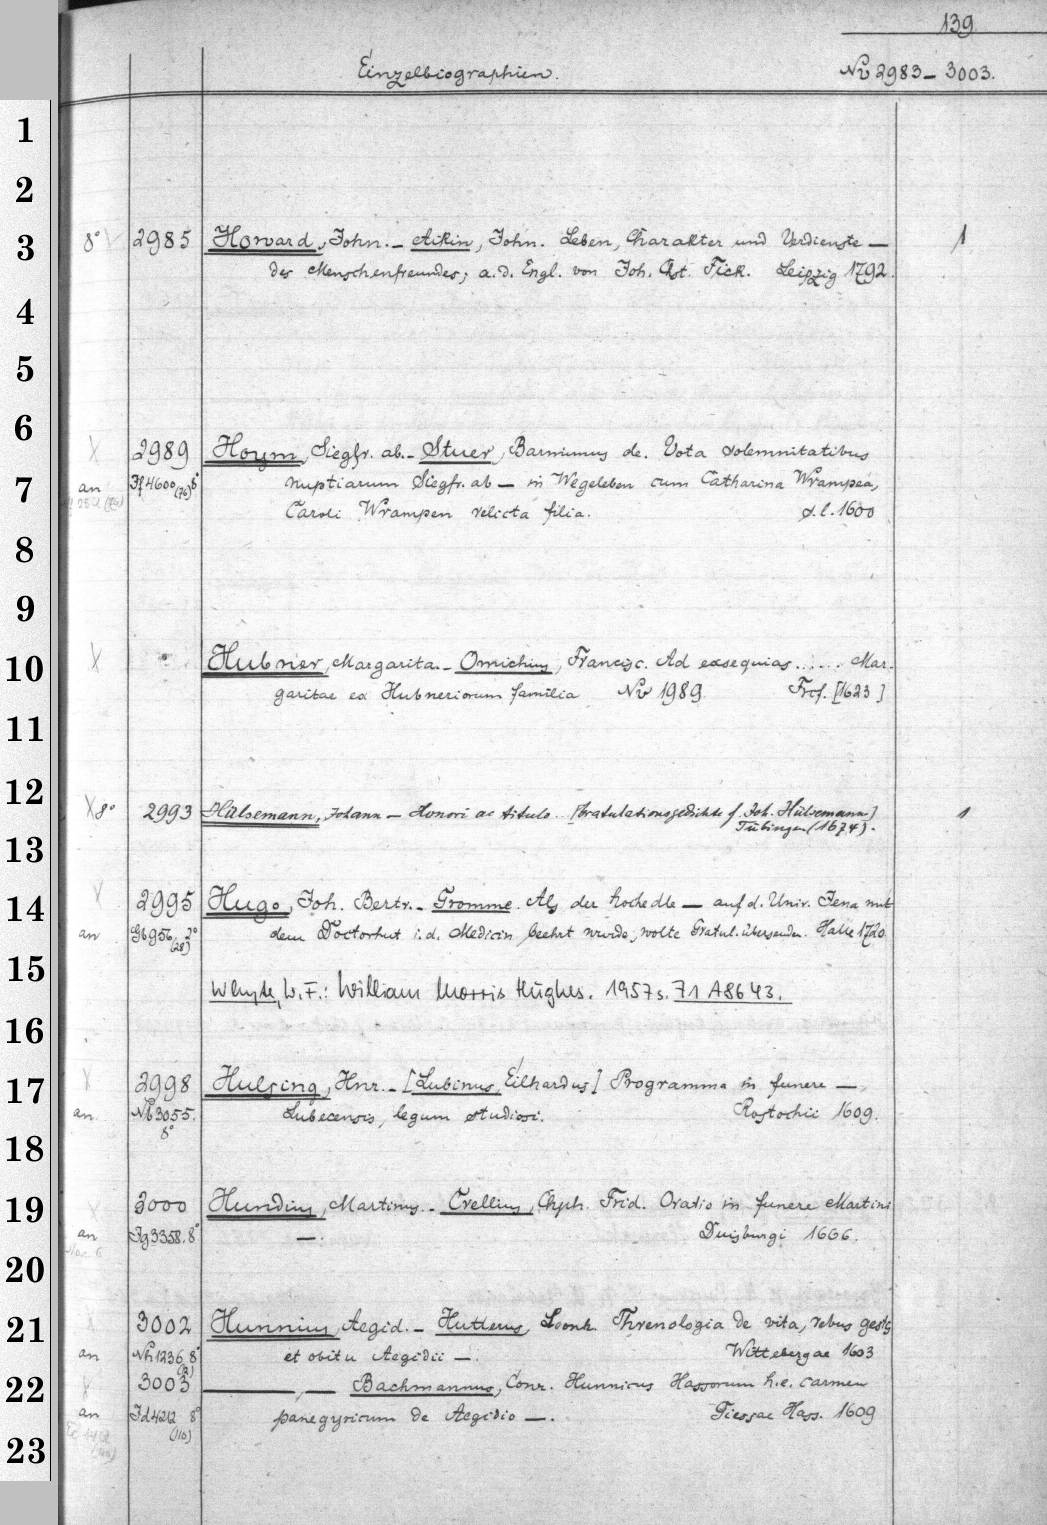 139.
Einzelbiographien. No 2983 – 3003.
1
2
3 8° 2985 Howard, John. – Aikin, John. Leben, Charakter und Verdienste – 1
des Menschenfreundes; a. d. Engl. von Joh. Cst. Fick. Leipzig 1792.
4
5
6
2989 Hoym, Siegfr. ab. – Stuer, Barnimus de. Vota solemnitatibus
7 an 4600 (76) 8° nuptiarum Siegfr. ab – in Wegeleben cum Catharina Wrampea,
Caroli Wrampen relicta filia. s. l. 1600
8
9
10 X Hubner, Margarita. – Omichius, Francisc. Ad exsequias ...... Mar-
garitae ex Hubneriorum familia No 1989. Frcf. [1623]
11
12 X 8° 2993 Hülsemann, Johann – Honori ac titulo.. [Gratulationsgedichte f. Joh. Hülsemann] 1
Tübingen (1674).
13
14 X 2995 Hugo, Joh. Bertr. – Gromme. Als der hochedle – auf d. Univ. Jena mit
an Gb 956 (28) 2° dem Doctorhut i. d. Medicin beehrt wurde, wolte Gratul. übersenden. Halle 1720.
15 Whyte, W. F.: William Morris Hughes. 1957 s. 71 A 8643.
16
17 X 2998 Hulsing, Hnr. – [Lubinus, Eilhardus] Programma in funere –
an Nb 3055. 8° Lubecensis, legum studiosi. Rostochii 1609.
18
19 3000 Hundius, Martinus. – Crellius, Chph. Frid. Oratio in funere Martini
an 3358. 8° – . Duisburgi 1666.
20
21 3002 Hunnius, Aegid. – Hutterus, Leonh. Threnologia de vita, rebus gestis
an Nh 1236 8° (2) et obitu Aegidii – . Wittebergae 1603
22 3003 ——, — Bachmannus, Conr. Hunnicus Hassorum h. e. carmen
an 4212 8° (110) panegyricum de Aegidio – . Giessae Hass. 1609
23